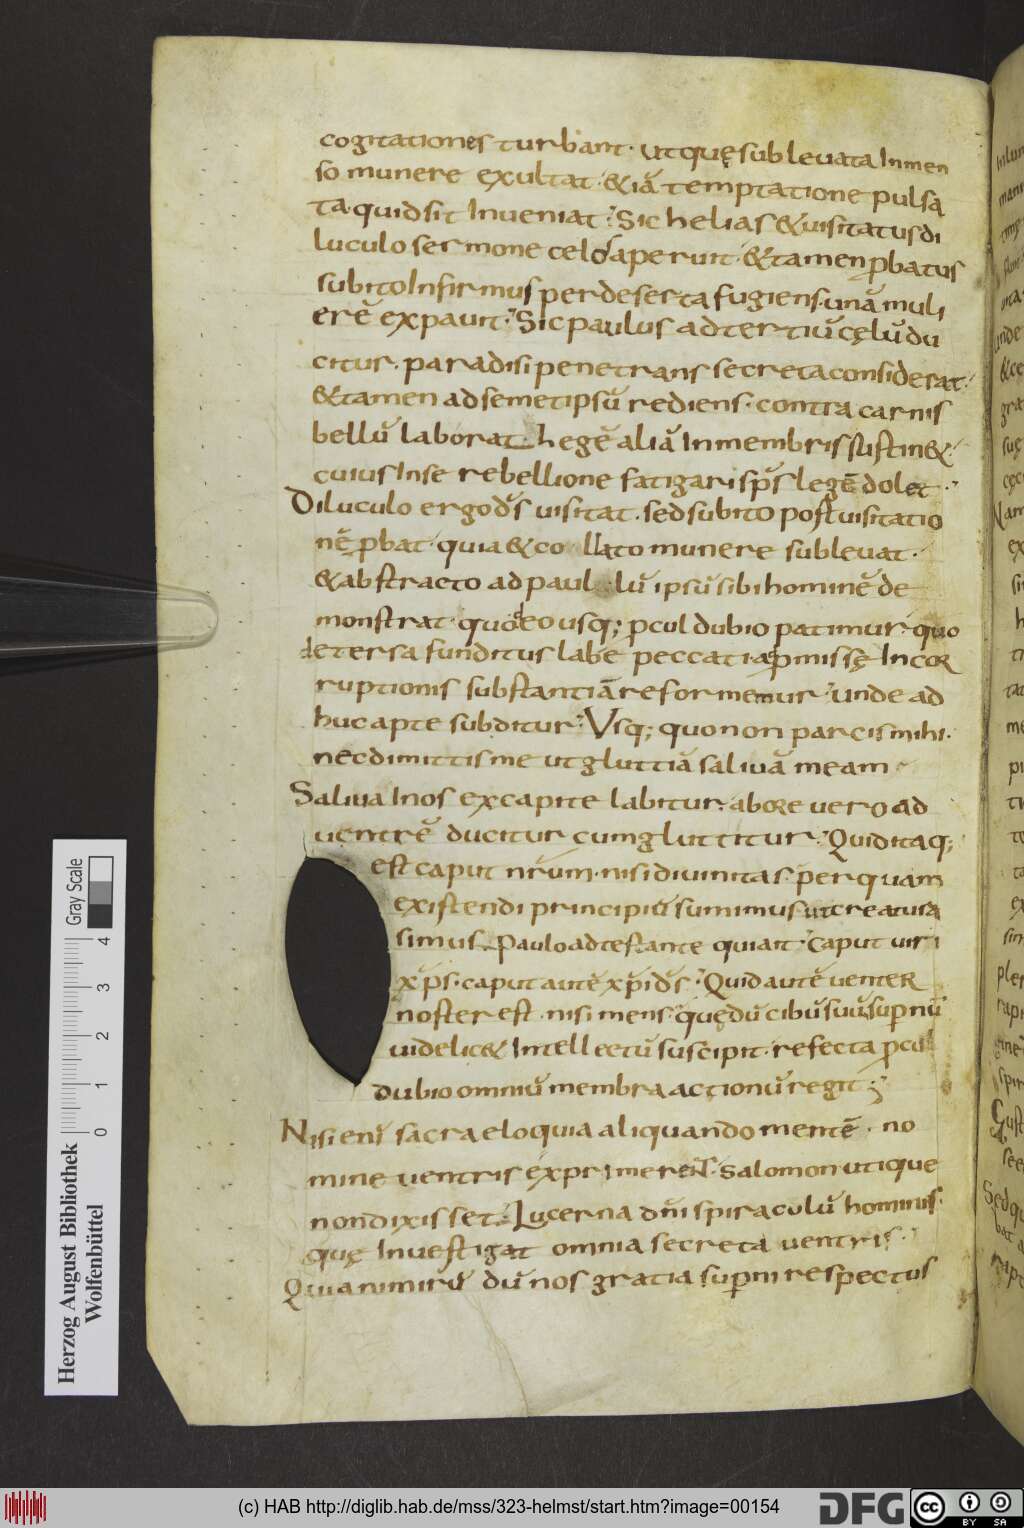 cogitationes turbant. utquę subleuata Inmen
so munere exultat. &iā temptatione pulsa
ta. quid sit Inueniat. Sic helias &uisitatus di
luculo sermone celos aperuit. &tamen ꝓbatus
subito Infirmus perdeserta fugiens. unā muli
erē expauit. Sic paulus ad tertiū cęlū du
citur. paradisi penetrans secreta considerat.
&tamen ad semetipsū rediens. contra carnis
bellū laborat. hegē aliā Inmembris sustin&.
cuius Inse rebellione fatigari sps̄ legē dolet.
Diluculo ergo ds̄ uisitat. sed subito post uisitatio
nē ꝓbat. quia & collato munere subleuat.
&abstracto ad paululū ipsū sibi hominē de
monstrat. quod eo usq; ꝓcul dubio patimur. quo
detersa funditus labe peccati. aꝓmissę Incor
ruptionis substantiā reformemur. Unde ad
huc apte subditur. Vsq; quo non parcis mihi.
nec dimittis me ut gluttiā saliuā meam.
Saliua Inos excapite labitur. abore uero ad
uentrē ducitur cum gluttitur. Quid itaq;
est caput nr̄um. nisi diuinitas. per quam
existendi principiū sumimus. ut creatura
simus. Paulo adtestante qui ait. Caput uiri
xp̄s. caput autē xp̄i ds̄. Quid autē uenter
noster est. nisi mens. quę dū cibū suū. supernū
uidelic& Intellectū suscipit. refecta ꝓcul
dubio omniū membra actionū regit.
Nisi eni sacra eloquia aliquando mentē. no
mine uentris exprimerent. Salomon utique
non dixisset. Lucerna dn̄i spiraculū hominis.
quę Inuestigat omnia secreta uentris.
Quia nimirū dū nos gratia superni respectus
Herzog August Bibliothek
Wolfenbüttel
Gray Scale
0 1 2 3 4
(c) HAB http://diglib.hab.de/mss/323-helmst/start.htm?image=00154
DFG
cc
BY SA